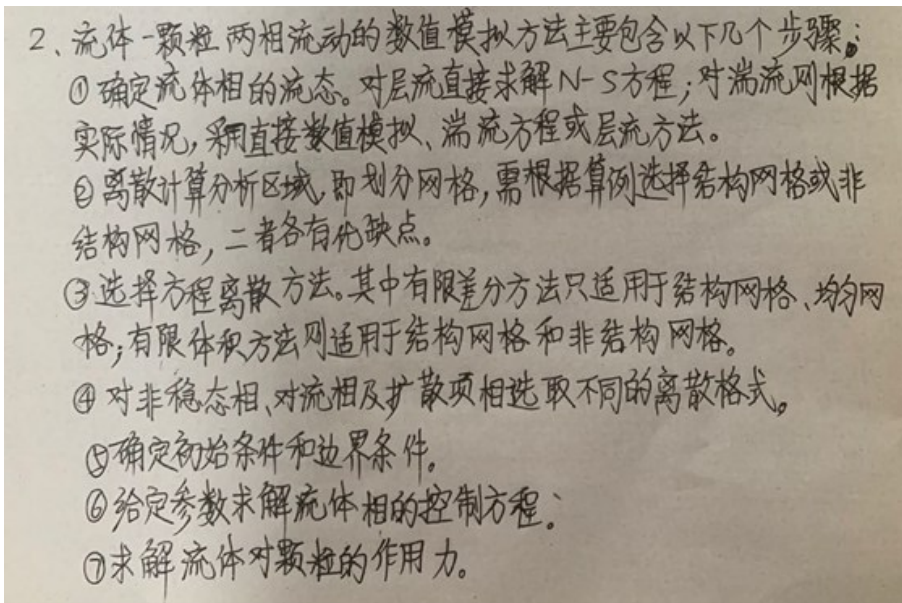 2、流体-颗粒两相流动的数值模拟方法主要包含以下几个步骤：
①确定流体相的流态。对层流直接求解N-S方程；对湍流则根据
实际情况，采用直接数值模拟、湍流方程或层流方法。
②离散计算分析区域，即划分网格，需根据算例选择结构网格或非
结构网格，二者各有优缺点。
③选择方程离散方法。其中有限差分方法只适用于结构网格、均匀网
格；有限体积方法则适用于结构网格和非结构网格。
④对非稳态相、对流相及扩散项相选取不同的离散格式。
⑤确定初始条件和边界条件。
⑥给定参数求解流体相的控制方程；
⑦求解流体对颗粒的作用力。